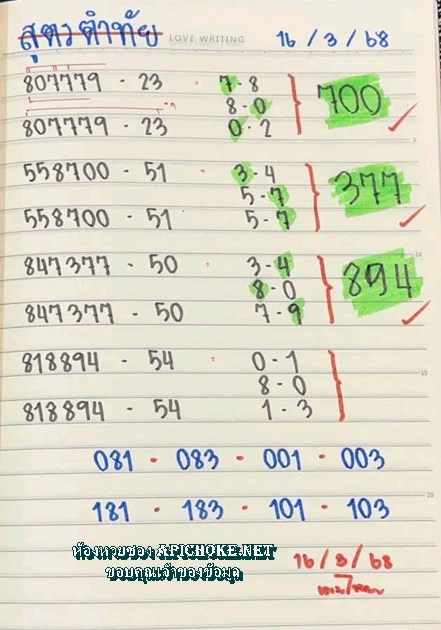 สูตรคำทัย LOVE WRITING 16/3/68
807779 - 23 - 7-8
8-0
807779 - 23 0-2
700
558700 - 51 - 3-4
5-7
558700 - 51 5-7
377
847377 - 50 - 3-4
8-0
847377 - 50 7-9
894
818894 - 54 - 0-1
8-0
818894 - 54 1-3
081 - 083 - 001 - 003
181 - 183 - 101 - 103
ห้องหวยซอง APICHOKE.NET
ขอบคุณเจ้าของข้อมูล
16/3/68